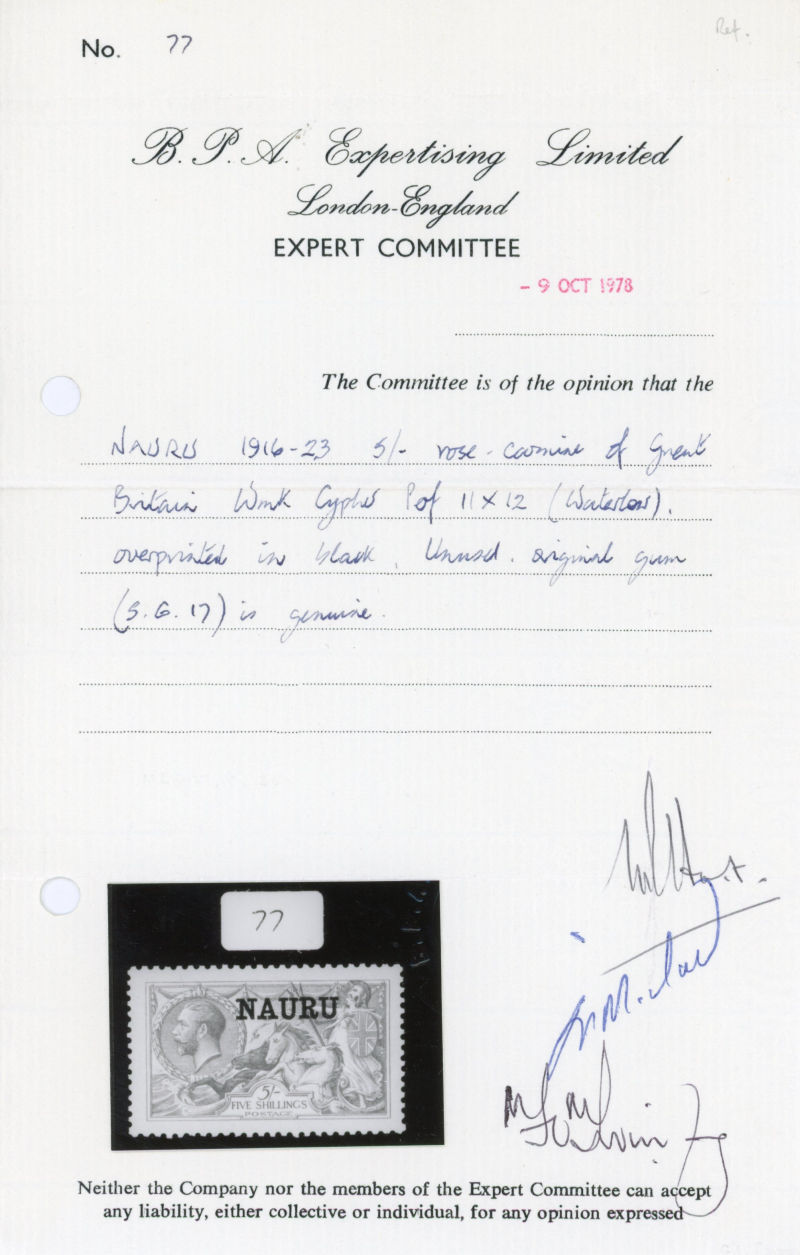 Ref.
No. 77
B. P. A. Expertising Limited
London-England
EXPERT COMMITTEE
- 9 OCT 1978
The Committee is of the opinion that the
NAURU 1916-23 5/- rose-carmine of Great
Britain Wmk Cypher Pof 11 x 12 (Waterlow).
overprinted in black. Unused. original gum
(S.G. 17) is genuine.
77
NAURU
5/-
FIVE SHILLINGS
POSTAGE
Neither the Company nor the members of the Expert Committee can accept
any liability, either collective or individual, for any opinion expressed